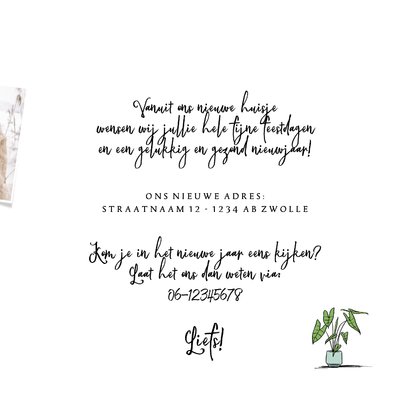 Vanuit ons nieuwe huisje
wensen wij jullie hele fijne feestdagen
en een gelukkig en gezond nieuwjaar!
ONS NIEUWE ADRES:
STRAATNAAM 12 - 1234 AB ZWOLLE
Kom je in het nieuwe jaar eens kijken?
Laat het ons dan weten via:
06-12345678
Liefs!